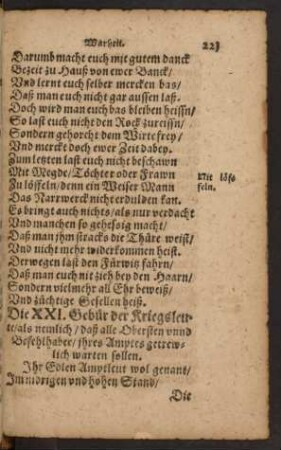 Warheit. 223
Darumb macht euch mit gutem danck
Bezeit zu Hauß von ewer Banck/
Vnd lernt euch selber mercken bas/
Daß man euch nicht gar aussen laß.
Doch wird man euch bas bleiben heissn/
So last euch nicht den Rock zureissn/
Sondern gehorcht dem Wirte frey/
Vnd merckt doch ewer Zeit dabey.
Zum letzten last euch nicht beschawn
Mit Megde/Töchter oder Frawn
Mit löf-
Zu löffeln/denn ein Weiser Mann
feln.
Das Narrwerck nicht erdulden kan.
Es bringt auch nichts/als nur verdacht
Vnd manchen so gehessig macht/
Daß man jhm stracks die Thüre weist/
Vnd nicht mehr widerkommen heist.
Derwegen last den Fürwitz fahrn/
Daß man euch nit zieh bey den Haarn/
Sondern vielmehr all Ehr beweiß/
Vnd züchtige Gesellen heiß.
Die XXI. Gebür der Kriegsleu-
te/als nemlich/daß alle Obersten vnnd
Befehlhaber/jhres Amptes getrew-
lich warten sollen.
Ihr Edlen Amptleut wol genant/
Im nidrigen vnd hohen Stand/
Die